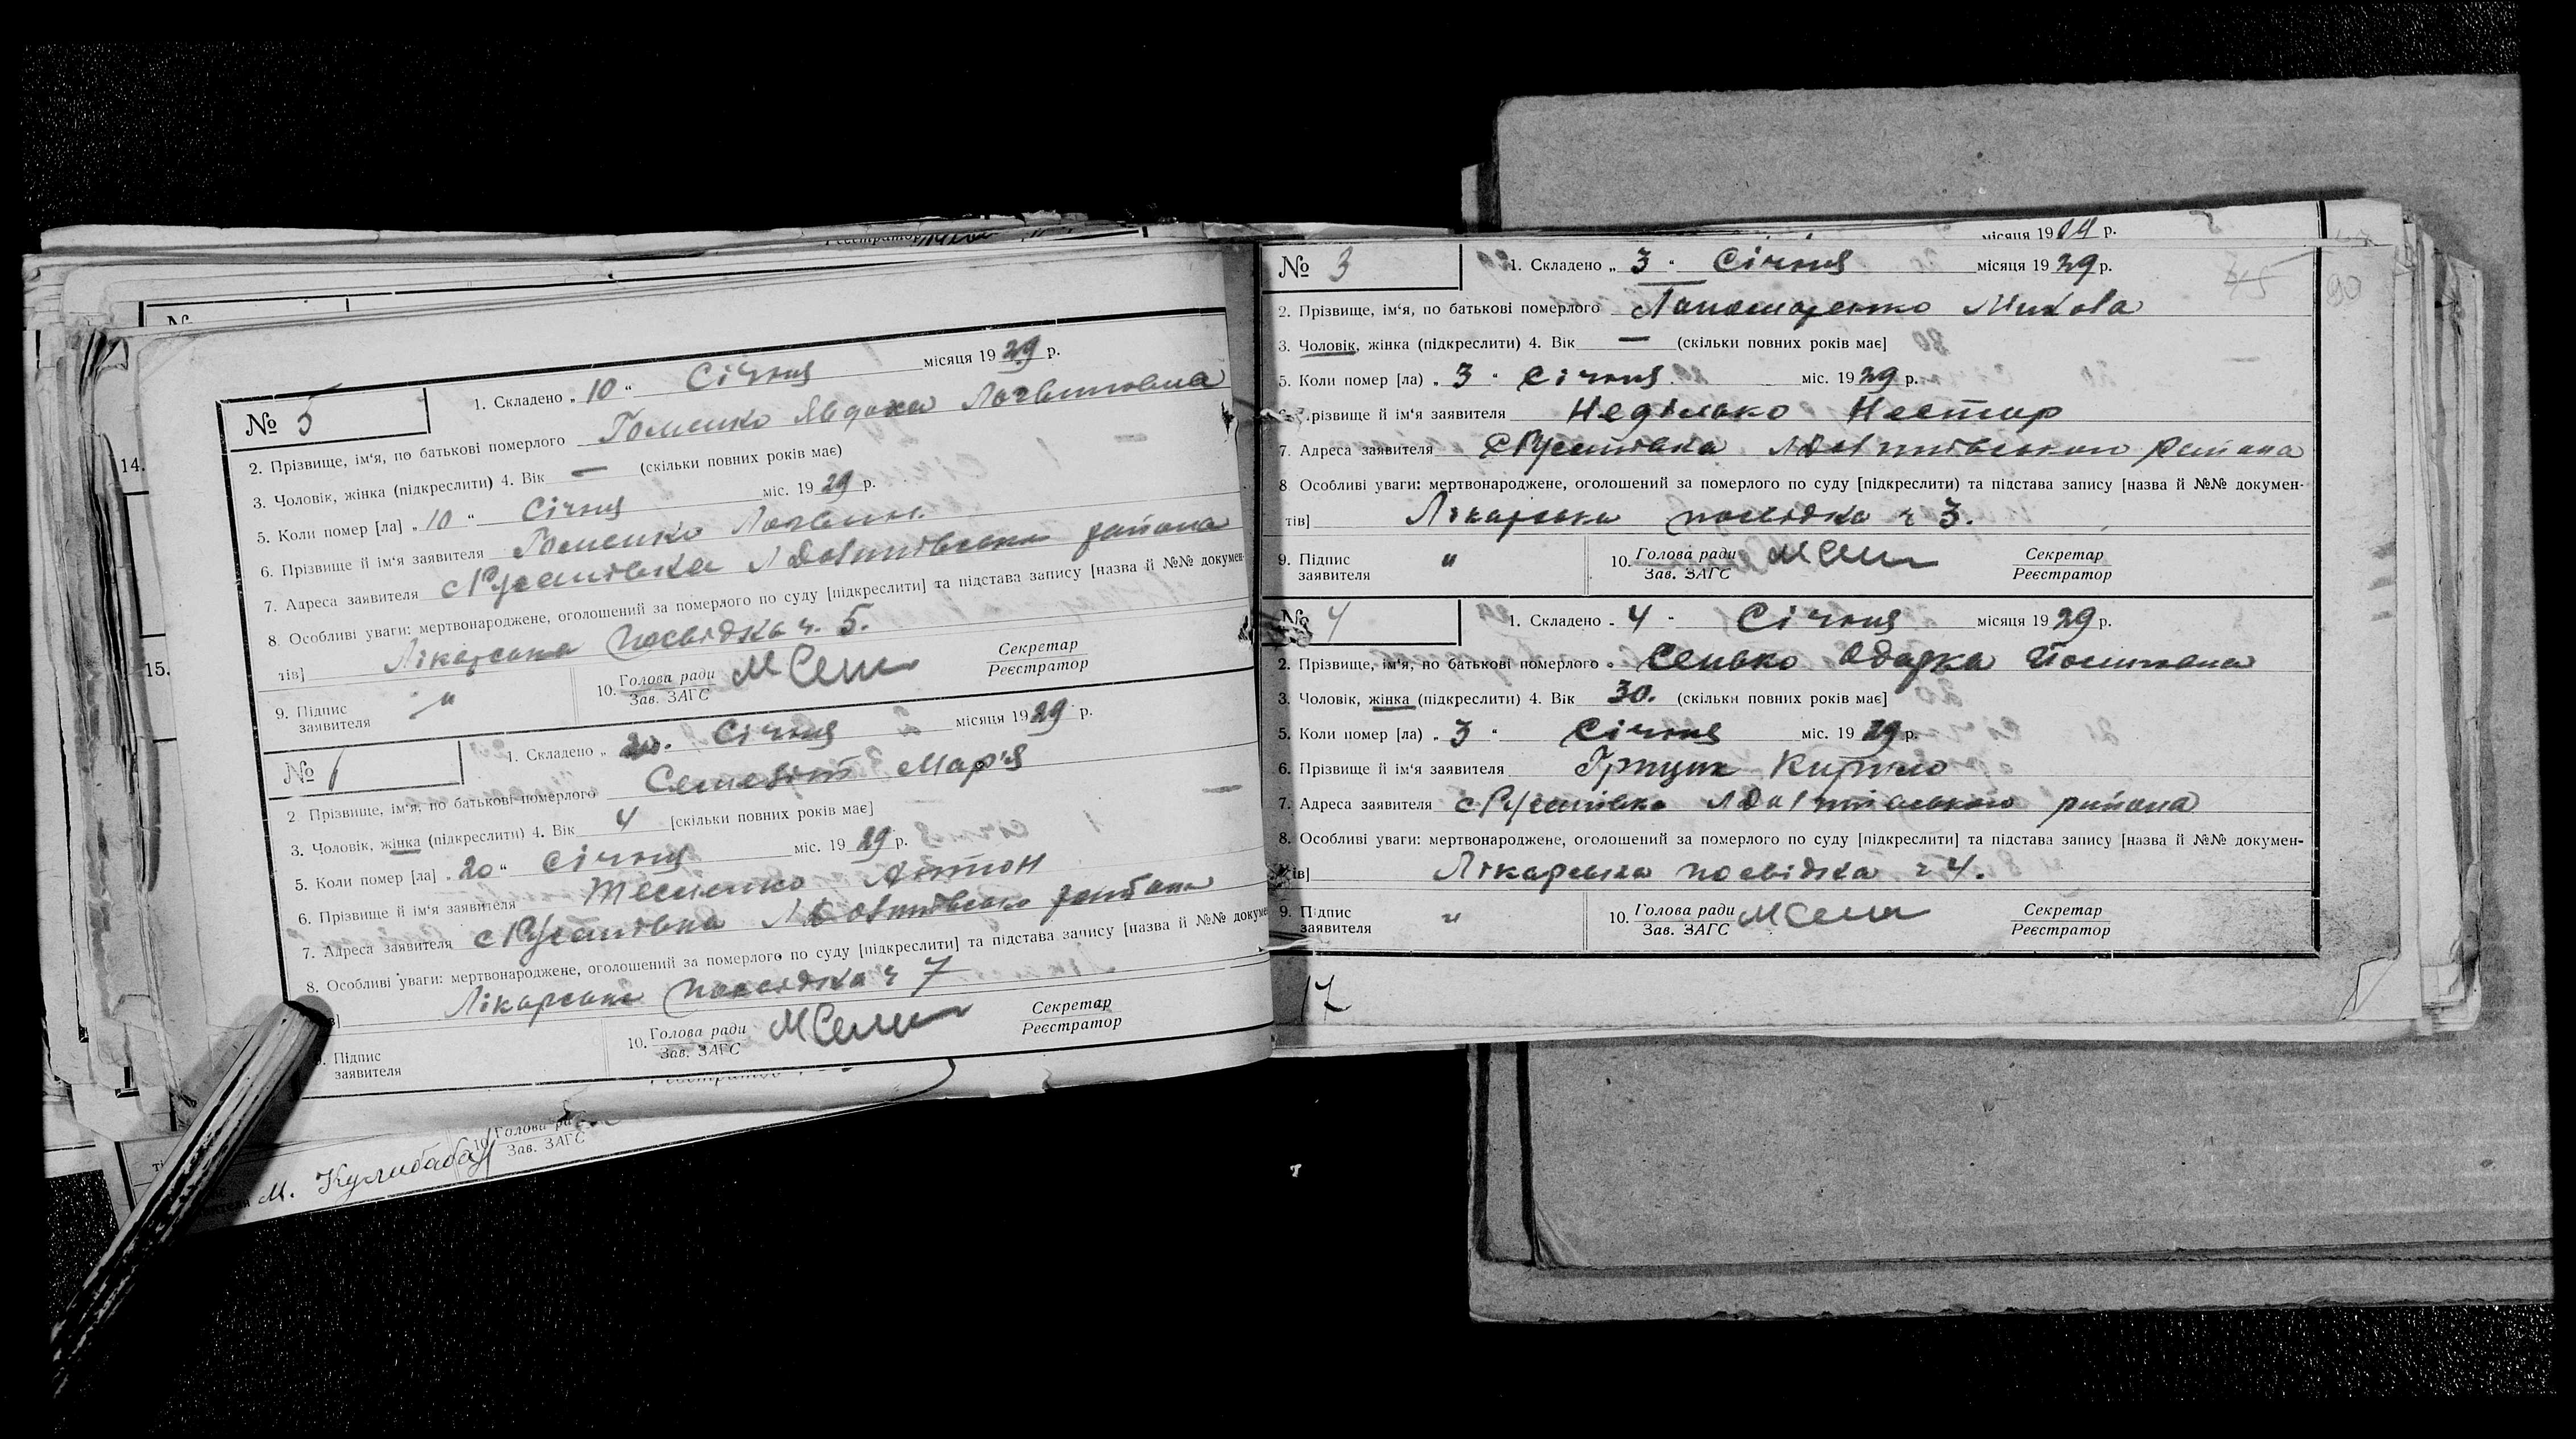 № 5
1. Складено „ 10 “ Січня місяця 1929 р.
2. Прізвище, ім'я, по батькові померлого Гоменко Явдоха Логвиновна
3. Чоловік, жінка (підкреслити) 4. Вік — (скільки повних років має)
5. Коли помер [ла] „ 10 “ Січня міс. 1929 р.
6. Прізвище й ім'я заявителя Гоменко Логвин
7. Адреса заявителя с Русанівка района
8. Особливі уваги: мертвонароджене, оголошений за померлого по суду [підкреслити] та підстава запису [назва й №№ докумен-
тів] Лікарська посвідка ч. 5.
9. Підпис заявителя „
10. Голова ради Зав. ЗАГС М Сем
Секретар Реєстратор
№ 6
1. Складено „ 20. Січня місяця 1929 р.
2 Прізвище, ім'я, по батькові померлого Марія
3. Чоловік, жінка (підкреслити) 4. Вік 4 [скільки повних років має]
5. Коли помер [ла] „ 20 “ Січня міс. 1929 р.
6. Прізвище й ім'я заявителя Антон
7. Адреса заявителя с Русанівка района
8. Особливі уваги: мертвонароджене, оголошений за померлого по суду [підкреслити] та підстава запису [назва й №№ докуме
в] Лікарська посвідка ч 7
9. Підпис заявителя
10. Голова ради Зав. ЗАГС М Сем
Секретар Реєстратор
10. Голова ра Зав. ЗАГС
М. Кулибаба
14.
15.
місяця 19 р.
№ 3
1. Складено „ 3 “ Січня місяця 1929 р.
45
90
2. Прізвище, ім'я, по батькові померлого Панамаренко Микола
3. Чоловік, жінка (підкреслити) 4. Вік — (скільки повних років має]
5. Коли помер [ла) „ 3 “ Січня міс. 1929 р.
різвище й ім'я заявителя Неділько Нестир
7. Адреса заявителя с Русанівка района
8 Особливі уваги: мертвонароджене, оголошений за померлого по суду [підкреслити) та підстава запису [назва й №№ докумен-
тів] Лікарська посвідка ч 3.
9. Підпис заявителя „
10. Голова ради Зав. ЗАГС М Сем
Секретар Реєстратор
№ 4
1. Складено „ 4 “ Січня місяця 1929 р.
2. Прізвище, ім'я, по батькові померлого Сенько Одарка
3. Чоловік, жінка (підкреслити) 4. Вік 30. (скільки повних років має]
5. Коли помер [ла) „ 3 “ Січня міс. 1929 р.
6. Прізвище й ім'я заявителя Грищик Кирило
7. Адреса заявителя с Русанівка района
8. Особливі уваги: мертвонароджене, оголошений за померлого по суду [підкреслити] та підстава запису [назва й №№ докумен-
тів] Лікарська посвідка ч 4.
9. Підпис заявителя „
10. Голова ради Зав. ЗАГС М Сем
Секретар Реєстратор
17